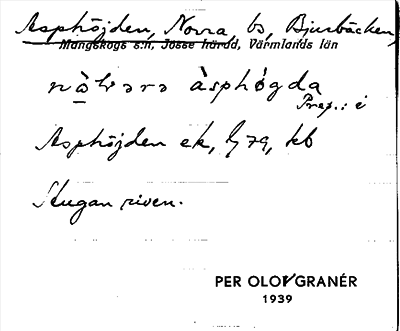 Asphöjden, Norra, bs, Bjursbäcken,
Mangskogs s:n, Jösse härad, Värmlands län
nꞷ̀lvərə àsphøgda
Prep.: i
Asphöjden ek, G 79, kb
Stugan riven.
PER OLOV GRANÉR
1939